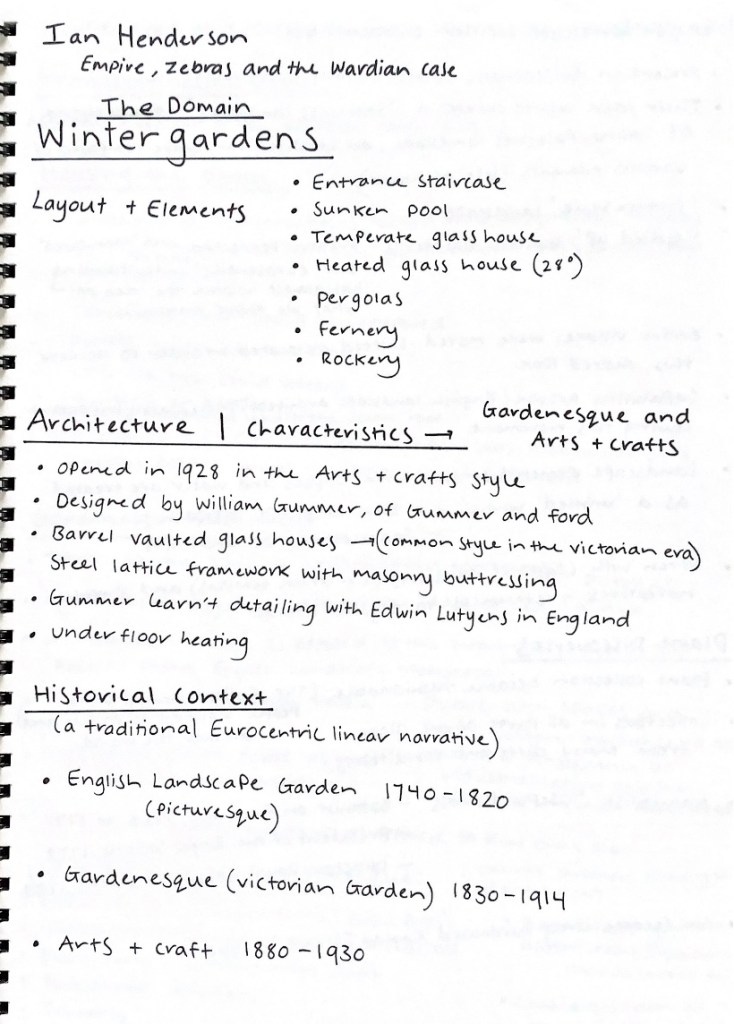 Ian Henderson
Empire, Zebras and the Wardian case
The Domain
Wintergardens
Layout + Elements
• Entrance staircase
• Sunken pool
• Temperate glass house
• Heated glass house (28°)
• Pergolas
• Fernery
• Rockery
Architecture | Characteristics → Gardenesque and
Arts + crafts
• Opened in 1928 in the Arts + crafts style
• Designed by William Gummer, of Gummer and Ford
• Barrel vaulted glass houses → (common style in the victorian era)
Steel lattice framework with masonry buttressing
• Gummer learn't detailing with Edwin Lutyens in England
• Underfloor heating
Historical Context
(a traditional Eurocentric linear narrative)
• English Landscape Garden 1740 - 1820
(Picturesque)
• Gardenesque (victorian Garden) 1830 - 1914
• Arts + craft 1880 - 1930